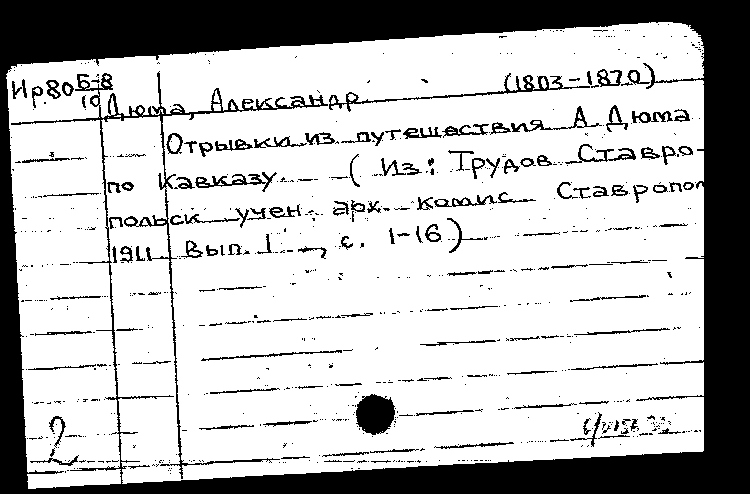 Ир.80 Б-8/10
Дюма, Александр (1803-1870)
Отрывки из путешествия А. Дюма
по Кавказу. (Из: Трудов Ставро-
польск учен. арх. комис Ставропол
1911 Вып. 1 , с. 1-16)
2